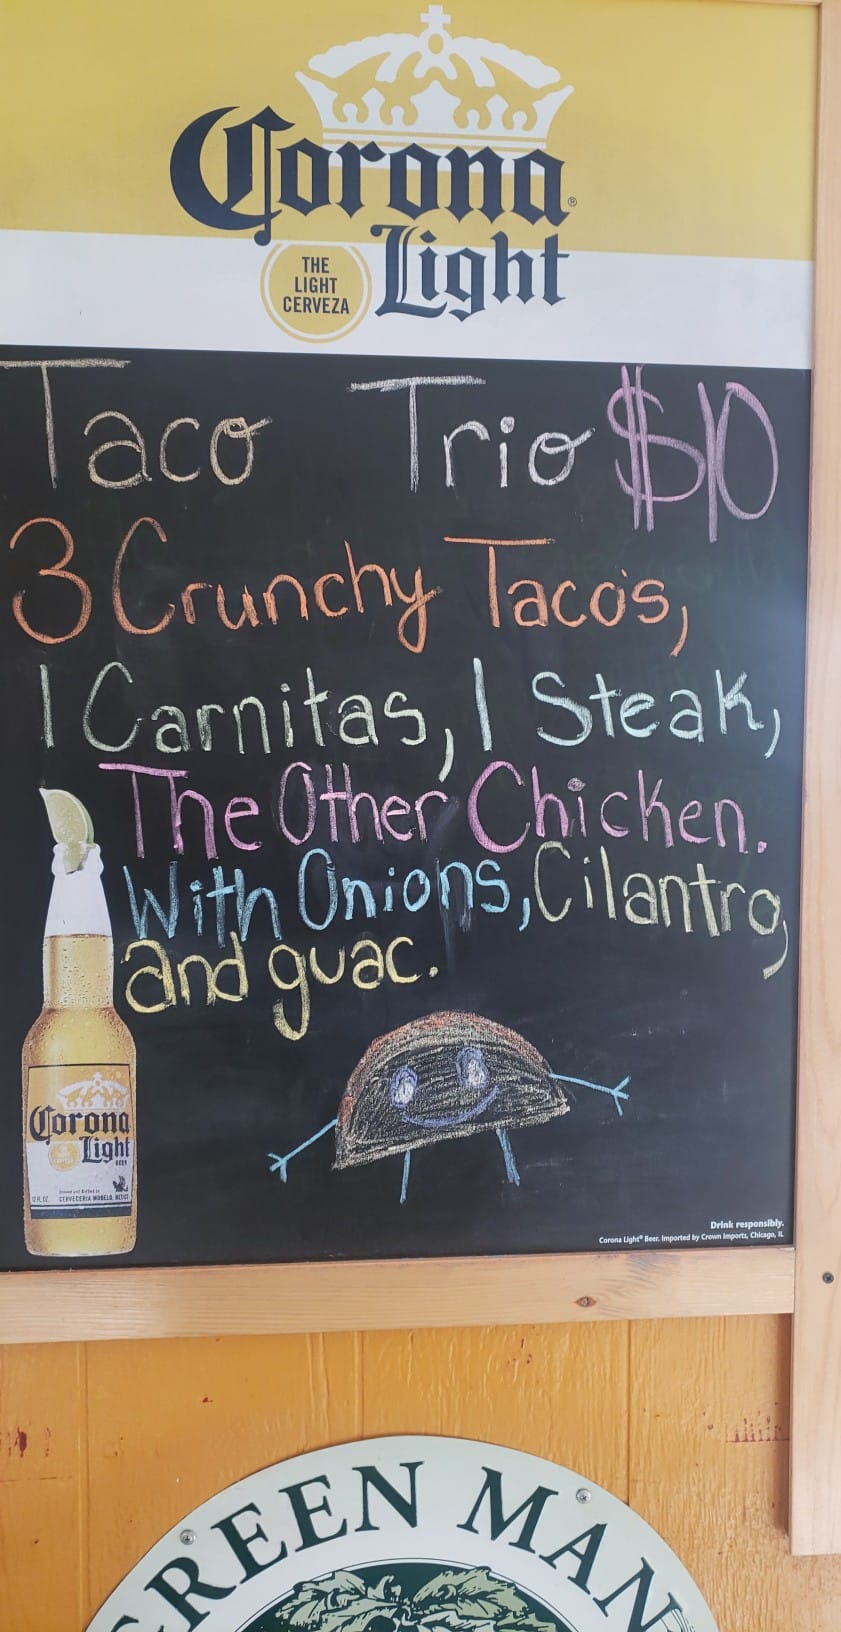 Corona®
Light
THE
LIGHT
CERVEZA
Taco Trio $10
3 Crunchy Taco's,
1 Carnitas, 1 Steak,
The Other Chicken.
With Onions, Cilantro,
and guac.
Corona
Light
BEER
12 FL. OZ.
CERVECERIA MODELO, MEXICO
Drink responsibly.
Corona Light® Beer. Imported by Crown Imports, Chicago, IL
GREEN MAN